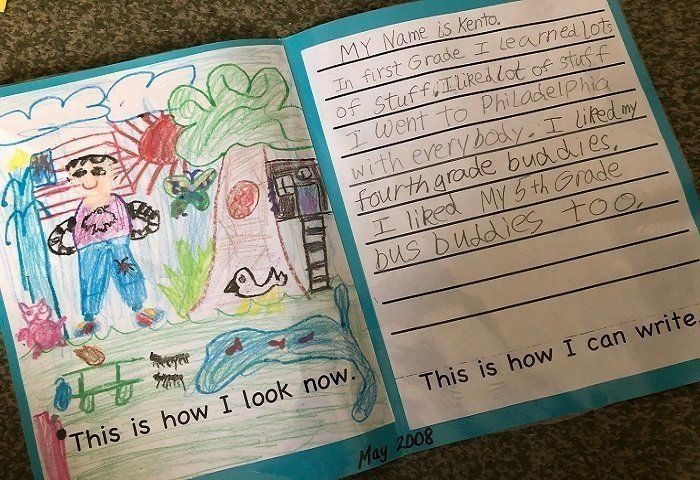 This is how I look now.
MY Name is Kento.
In first Grade I learned Lots
of stuff. I liked Lot of stuff
I went to PhiLadeLPhia
with everybody. I liked my
fourth grade buddies.
I liked My 5th Grade
bus buddies too.
This is how I can write.
May 2008